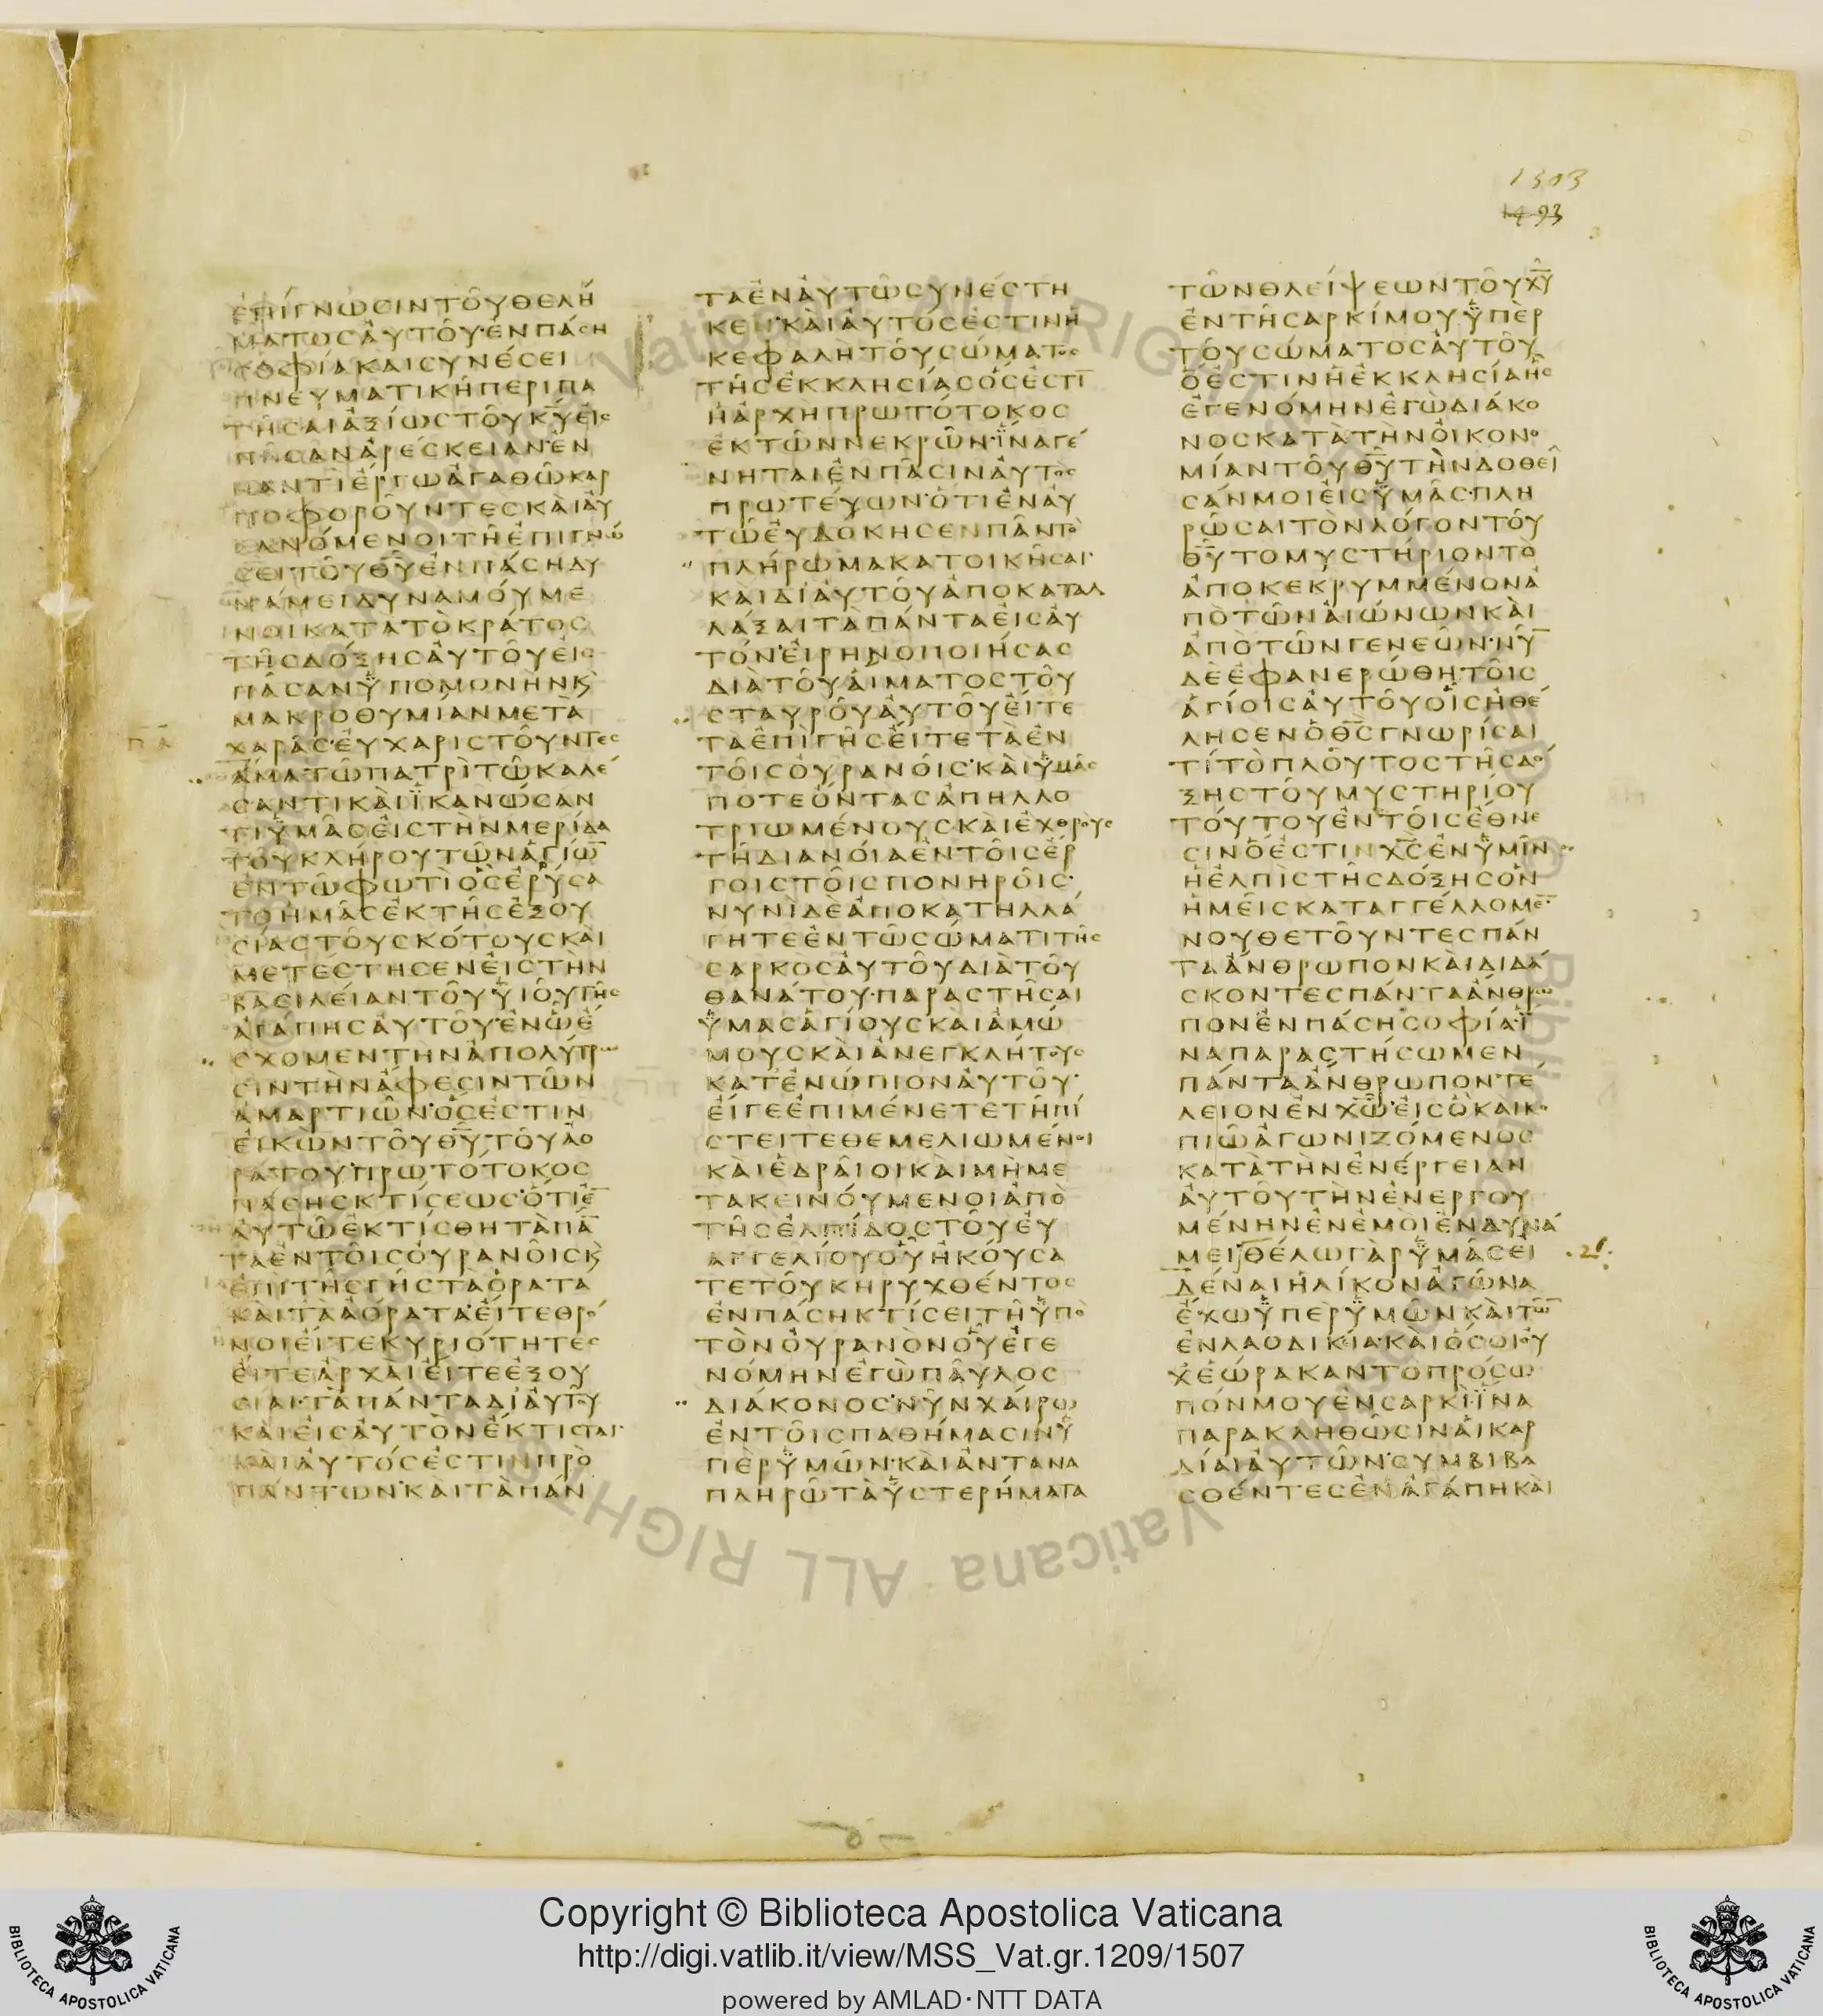 1503
1493
ἐπίγνωσιν τοῦ θελή
ματος αὐτοῦ ἐν πάση
σοφία καὶ συνέσει
πνευματικῆ περιπα
τῆσαι ἀξίως τοῦ κ̅υ̅ εἰς
πᾶσαν ἀρέσκειαν ἐν
παντὶ ἔργω ἀγαθῶ καρ
ποφοροῦντες καὶ αὐ
ξανόμενοι τῆ ἐπιγνώ
σει τοῦ θ̅υ̅ ἐν πάση δυ
νάμει δυναμούμε
νοι κατὰ τὸ κράτος
τῆς δόξης αὐτοῦ εἰς
πᾶσαν ὑπομονὴν κ̀
μακροθυμίαν μετὰ
χαρᾶς εὐχαριστοῦντες
ἅμα τῶ πατρὶ τῶ καλέ
σαντι καὶ ἱκανώσαν
τι ὑμᾶς εἰς τὴν μερίδα
τοῦ κλήρου τῶν ἁγίω̅
ἐν τῶ φωτὶ ὃς ἐρύσα
το ἡμᾶς ἐκ τῆς ἐξου
σίας τοῦ σκότους καὶ
μετέστησεν εἰς τὴν
βασιλείαν τοῦ υἱοῦ τῆς
ἀγάπης αὐτοῦ ἐν ὧ ἔ
σχομεν τὴν ἀπολύτρω
σιν τὴν ἄφεσιν τῶν
ἁμαρτιῶν ὅς ἐστιν
εἰκὼν τοῦ θ̅υ̅ τοῦ ἀο
ράτου πρωτότοκος
πάσης κτίσεως ὅτι ἐ̅
αὐτῶ ἐκτίσθη τὰ πά̅
τα ἐν τοῖς οὐρανοῖς κ̀
ἐπὶ τῆς γῆς τὰ ὁρατὰ
καὶ τὰ ἀόρατα εἴτε θρό
νοι εἴτε κυριότητες
εἴτε ἀρχαὶ εἴτε ἐξου
σίαι τὰ πάντα δι' αὐτοῦ
καὶ εἰς αὐτὸν ἔκτισται
καὶ αὐτός ἐστιν πρὸ
πάντων καὶ τὰ πάν
τα ἐν αὐτῶ συνέστη
κεν καὶ αὐτός ἐστιν ἡ
κεφαλὴ τοῦ σώματος
τῆς ἐκκλησίας ὅς ἐστι̅
ἡ ἀρχὴ πρωτότοκος
ἐκ τῶν νεκρῶν ἵνα γέ
νηται ἐν πᾶσιν αὐτὸς
πρωτεύων ὅτι ἐν αὐ
τῶ εὐδόκησεν πᾶν τὸ
πλήρωμα κατοικῆσαι
καὶ δι' αὐτοῦ ἀποκαταλ
λάξαι τὰ πάντα εἰς αὐ
τόν εἰρηνοποιήσας
διὰ τοῦ αἵματος τοῦ
σταυροῦ αὐτοῦ εἴτε
τὰ ἐπὶ γῆς εἴτε τὰ ἐν
τοῖς οὐρανοῖς καὶ ὑμᾶς
ποτε ὄντας ἀπηλλο
τριωμένους καὶ ἐχθροὺς
τῆ διανοία ἐν τοῖς ἔρ
γοις τοῖς πονηροῖς
νυνὶ δὲ ἀποκατηλλά
γητε ἐν τῶ σώματι τῆς
σαρκὸς αὐτοῦ διὰ τοῦ
θανάτου παραστῆσαι
ὑμᾶς ἁγίους καὶ ἀμώ
μους καὶ ἀνεγκλήτους
κατενώπιον αὐτοῦ
εἴγε ἐπιμένετε τῆ πί
στει τεθεμελιωμένοι
καὶ ἑδραῖοι καὶ μὴ με
τακεινούμενοι ἀπὸ
τῆς ἐλπίδος τοῦ εὐ
αγγελίου οὗ ἠκούσα
τε τοῦ κηρυχθέντος
ἐν πάση κτίσει τῆ ὑπὸ
τὸν οὐρανὸν οὗ ἐγε
νόμην ἐγὼ παῦλος
διάκονος νῦν χαίρω
ἐν τοῖς παθήμασιν ὑ
πὲρ ὑμῶν καὶ ἀντανα
πληρῶ τὰ ὑστερήματα
τῶν θλείψεων τοῦ χ̅υ̅
ἐν τῆ σαρκί μου ὑπὲρ
τοῦ σώματος αὐτοῦ
ὅ ἐστιν ἡ ἐκκλησία ἧς
ἐγενόμην ἐγὼ διάκο
νος κατὰ τὴν οἰκονο
μίαν τοῦ θ̅υ̅ τὴν δοθεῖ
σάν μοι εἰς ὑμᾶς πλη
ρῶσαι τὸν λόγον τοῦ
θ̅υ̅ τὸ μυστήριον τὸ
ἀποκεκρυμμένον ἀ
πὸ τῶν αἰώνων καὶ
ἀπὸ τῶν γενεῶν νῦ̅
δὲ ἐφανερώθη τοῖς
ἁγίοις αὐτοῦ οἷς ἠθέ
λησεν ὁ θ̅ς̅ γνωρίσαι
τί τὸ πλοῦτος τῆς δό
ξης τοῦ μυστηρίου
τούτου ἐν τοῖς ἔθνε
σιν ὅ ἐστιν χ̅ς̅ ἐν ὑμῖν
ἡ ἐλπὶς τῆς δόξης ὃν
ἡμεῖς καταγγέλλομε̅
νουθετοῦντες πάν
τα ἄνθρωπον καὶ διδά
σκοντες πάντα ἄνθρω
πον ἐν πάση σοφία ἵ
να παραστήσωμεν
πάντα ἄνθρωπον τέ
λειον ἐν χ̅ω̅ εἰς ὃ καὶ κο
πιῶ ἀγωνιζόμενος
κατὰ τὴν ἐνέργειαν
αὐτοῦ τὴν ἐνεργου
μένην ἐν ἐμοὶ ἐν δυνά
μει θέλω γὰρ ὑμᾶς εἰ
δέναι ἡλίκον ἀγῶνα
ἔχω ὑπὲρ ὑμῶν καὶ τῶ̅
ἐν λαοδικία καὶ ὅσοι οὐ
χ ἑώρακαν τὸ πρόσω
πόν μου ἐν σαρκὶ ἵνα
παρακληθῶσιν αἱ καρ
δίαι αὐτῶν συμβιβα
σθέντες ἐν ἀγάπη καὶ
Copyright © Biblioteca Apostolica Vaticana
http://digi.vatlib.it/view/MSS_Vat.gr.1209/1507
powered by AMLAD·NTT DATA
BIBLIOTECA APOSTOLICA VATICANA
BIBLIOTECA APOSTOLICA VATICANA